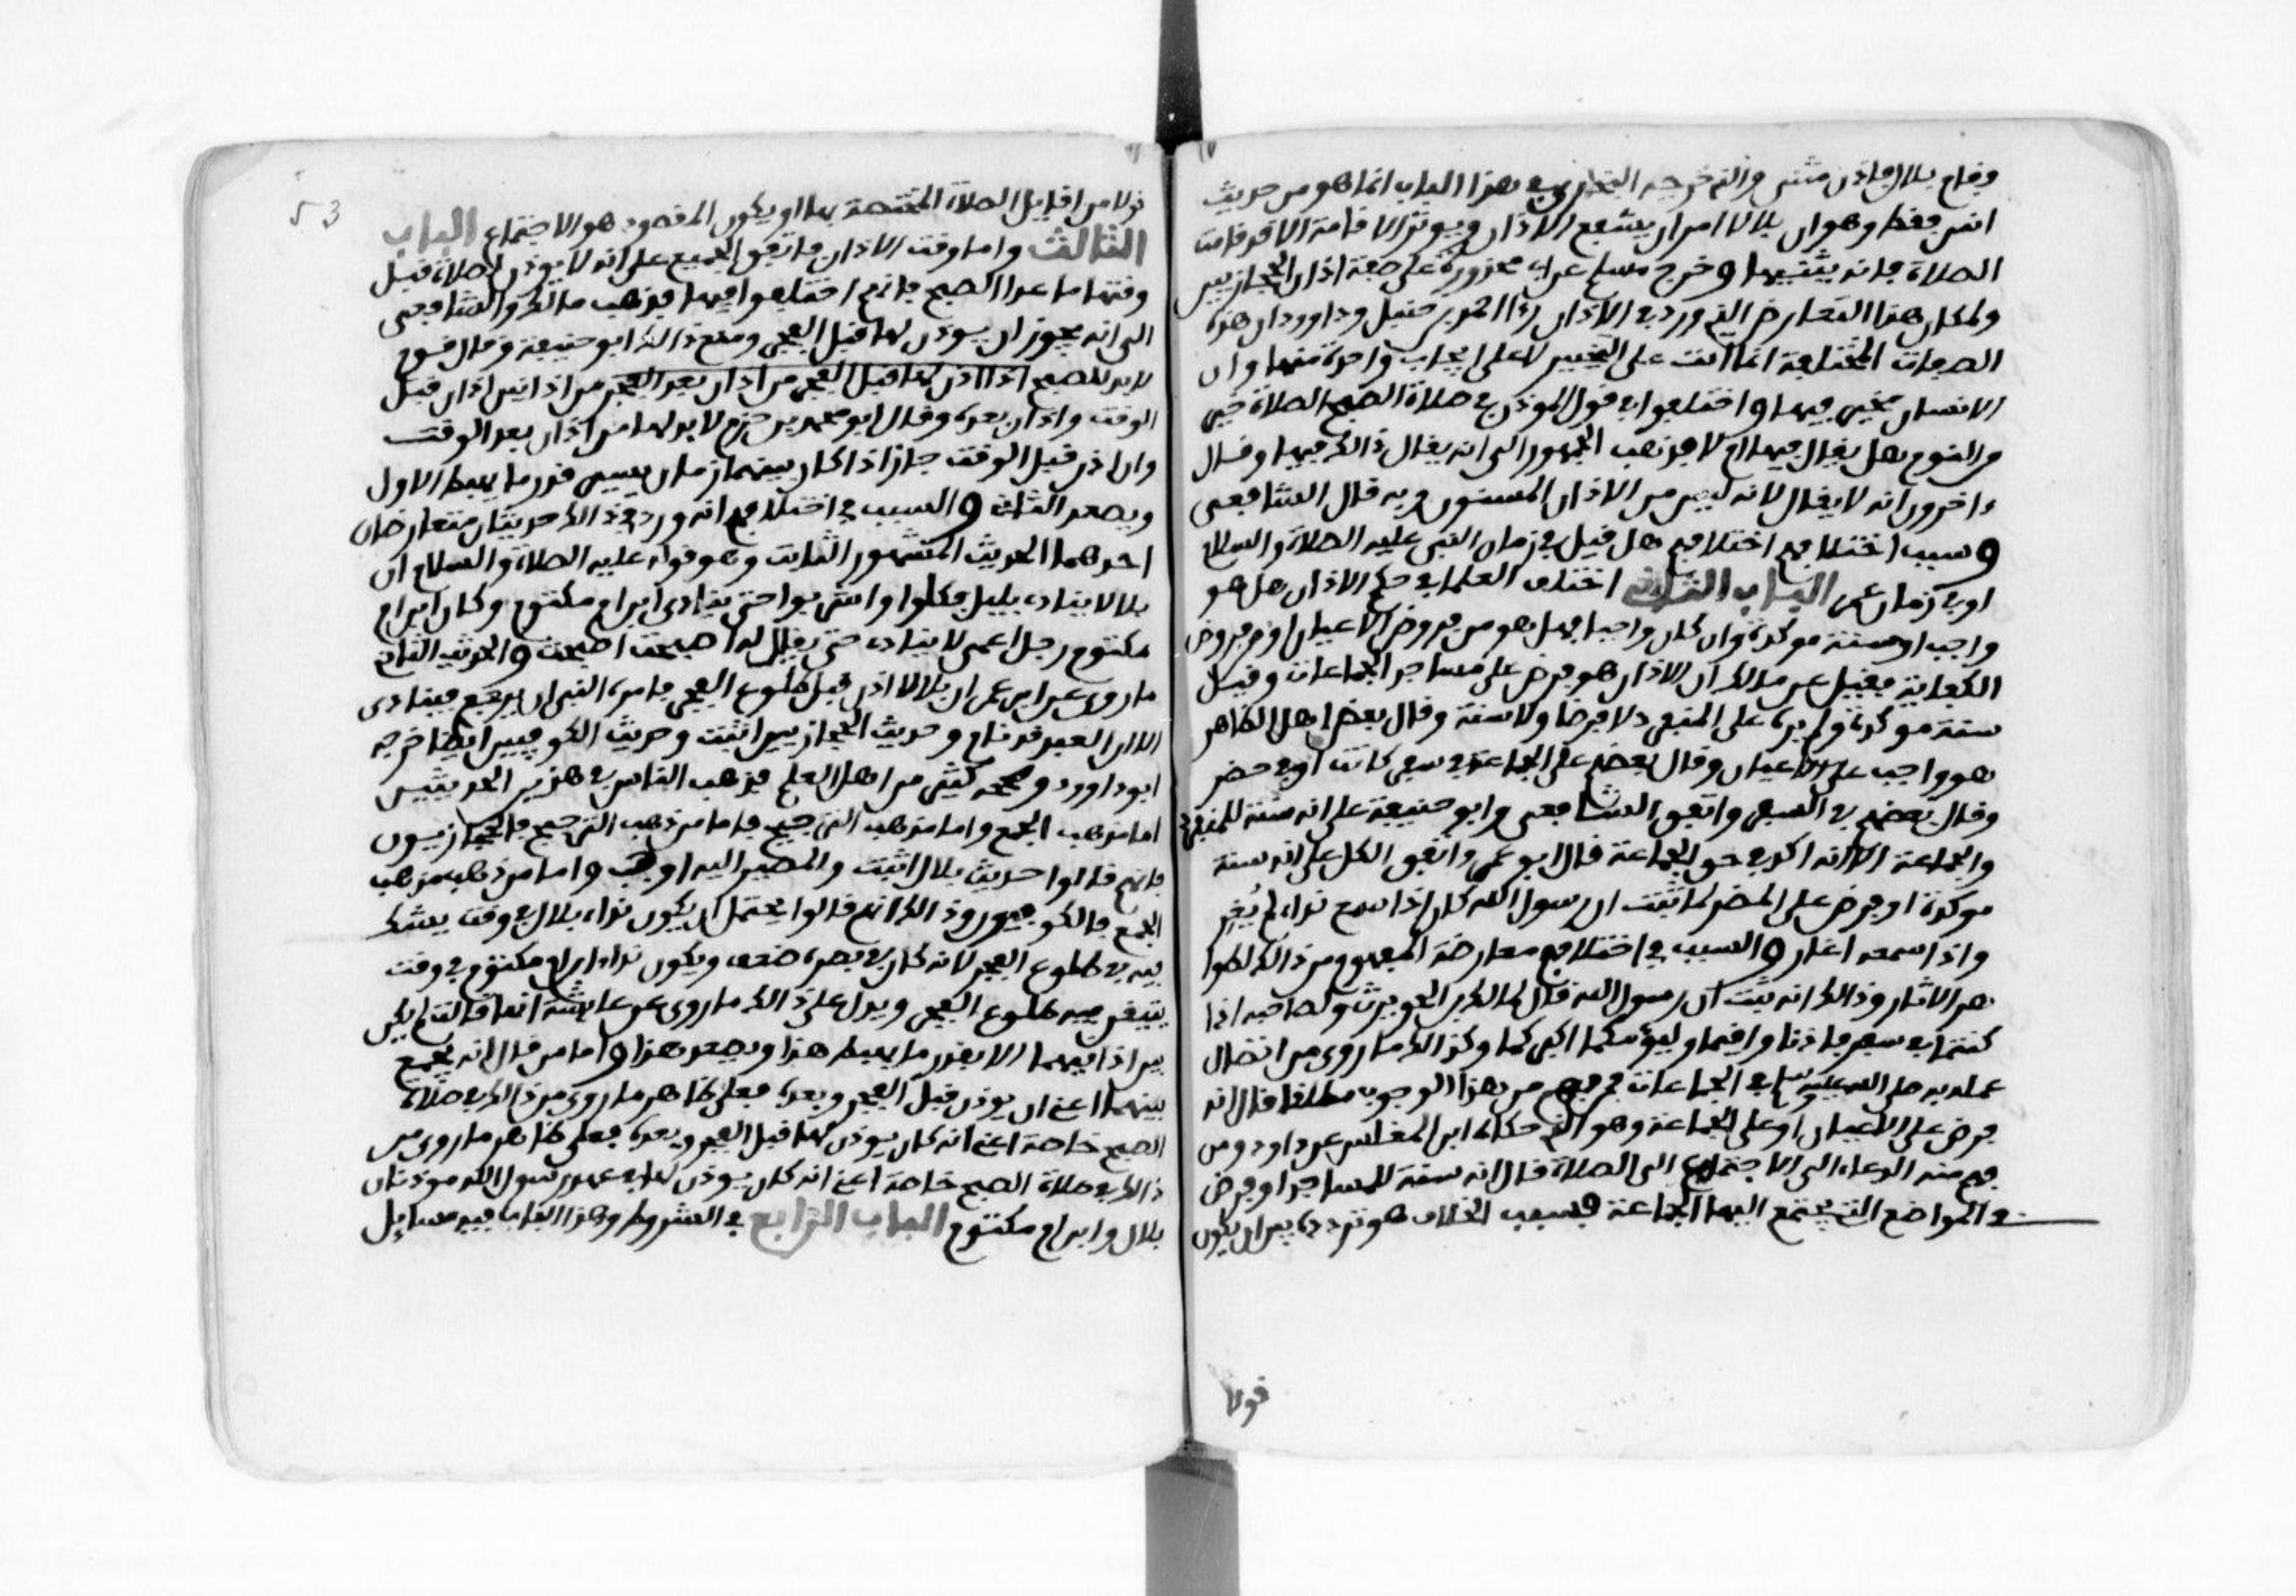 وقام بلال فاذن مثنى والذي خرجه البخاري في هذا الباب انما هو من حديث
انس فقط وهو ان بلالا امر ان يشفع الاذان ويوتر الاقامة الا قد قامت
الصلاة فانه يثنيها وخرج مسلم عن ابي محذورة على صفة اذان الحجازيين
ولمكان هذا التعارض الذي ورد في الاذان راا احمد بن حنبل وداوود ان هذه
الصفات المختلفة انما اتت على التخيير لا على ايجاب واحدة منها وان
الانسان مخير فيها واختلفوا في قول الموذن في صلاة الصبح الصلاة خير
من النوم هل يقال فيها ام لا فذهب الجمهور الى انه يقال ذالك فيها وقال
ءاخرون انه لا يقال لانه ليس من الاذان المسنون وبه قال الشافعي
وسبب اختلافهم اختلافهم هل قيل في زمان النبي عليه الصلاة والسلام
او في زمان عمر الباب الثاني اختلف العلما في حكم الاذان هل هو
واجب او سنة موكدة وان كان واجبا فهل هو من فروض الاعيان او من فروض
الكفاية فقيل عن مالك ان الاذان هو فرض على مساجد الجماعات وقيل
سنة موكدة ولم يره على المنفرد لا فرضا ولا سنة وقال بعض اهل الظاهر
هو واجب على الاعيان وقال بعضهم على الجماعة في سفر كانت او في حضر
وقال بعضهم في السفر واتفق الشافعي وابو حنيفة على انه سنة للمنفرد
والجماعة الا انه اكد في حق الجماعة قال ابو عمر واتفق الكل على انه سنة
موكدة او فرض على المصر لما ثبت ان رسول الله كان اذا سمع نداء لم يُغِر
واذا لم يسمعه اغار والسبب في اختلافهم معارضة المفهوم من ذالك لظوا
هر الاثار وذالك انه ثبت ان رسول الله قال لمالك بن الحويرث ولصاحبه اذا
كنتما في سفر فاذنا واقيما وليؤمكما اكبركما وكذالك ما روي من اتصال
عمله به صلى الله عليه وسلم في الجماعات فمن فهم من هذا الوجوب مطلقا قال انه
فرض على الاعيان او على الجماعة وهو الذي حكاه ابن المغلس عن داوود ومن
فهم منه الدعاء الى الاجتماع الى الصلاة قال انه سنة للمساجد او فرض
في المواضع التي يجتمع اليها الجماعة فسبب الخلاف هو تردده بين ان يكون
قولا
53
قولا من اقاويل الصلاة المختصة بها او يكون المقصود هو الاجتماع الباب
الثالث واما وقت الاذان فاتفق الجميع على انه لا يوذن لصلاة قبل
وقتها ما عدا الصبح فانهم اختلفوا فيها فذهب مالك والشافعي
الى انه يجوز ان يوذن لها قبل الفجر ومنع ذالك ابو حنيفة وقال قوم
لا بد للصبح اذا اذن لها قبل الفجر من اذان بعد الفجر من اذانين اذان قبل
الوقت واذان بعده وقال ابو محمد بن حزم لا بد لها من اذان بعد الوقت
وان اذن قبل الوقت جاز اذا كان بينهما زمان يسير قدر ما يهبط الاول
ويصعد الثاني والسبب في اختلافهم انه ورد في ذالك حديثان متعارضان
احدهما الحديث المشهور الثابت وهو قوله عليه الصلاة والسلام ان
بلالا ينادي بليل فكلوا واشربوا حتى ينادي ابن ام مكتوم وكان ابن ام
مكتوم رجلا اعمى لا ينادي حتى يقال له اصبحت اصبحت والحديث الثاني
ما روي عن ابن عمر ان بلالا اذن قبل طلوع الفجر فامره النبي ان يرجع فينادي
الا ان العبد قد نام وحديث الحجازيين اثبت وحديث الكوفيين ايضا خرجه
ابو داوود وصححه كثير من اهل العلم فذهب الناس في هذين الحديثين
اما مذهب الجمع واما مذهب الترجيح فاما من ذهب الترجيح فالحجازيون
فانهم قالوا حديث بلال اثبت والمصير اليه اوجب واما من ذهب مذهب
الجمع فالكوفيون وذالك انهم قالوا يحتمل ان يكون نداء بلال في وقت يشك
فيه في طلوع الفجر لانه كان في بصره ضعف ويكون نداء ابن ام مكتوم في وقت
يتيقن فيه طلوع الفجر ويدل على ذالك ما روي عن عايشة انها قالت لم يكن
بين اذانيهما الا بقدر ما يهبط هذا ويصعد هذا واما من قال انه يجمع
بينهما اعني ان يوذن قبل الفجر وبعده فعلى ظاهر ما روي من ذالك في صلاة
الصبح خاصة اعني انه كان يوذن لها قبل الفجر وبعده فعلى ظاهر ما روي من
ذالك في صلاة الصبح خاصة اعني انه كان يوذن لها في عهد رسول الله موذنان
بلال وابن ام مكتوم الباب الرابع في الشروط وهذا الباب فيه مسايل